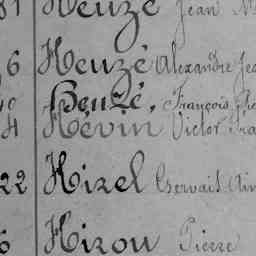 81 Heuzé Jean M
6 Heuzé Alexandre Je
Heuzé, François, Pie
4 Hévin Victor Fra
22 Hirel Gervais Aim
6 Hirou Pierre